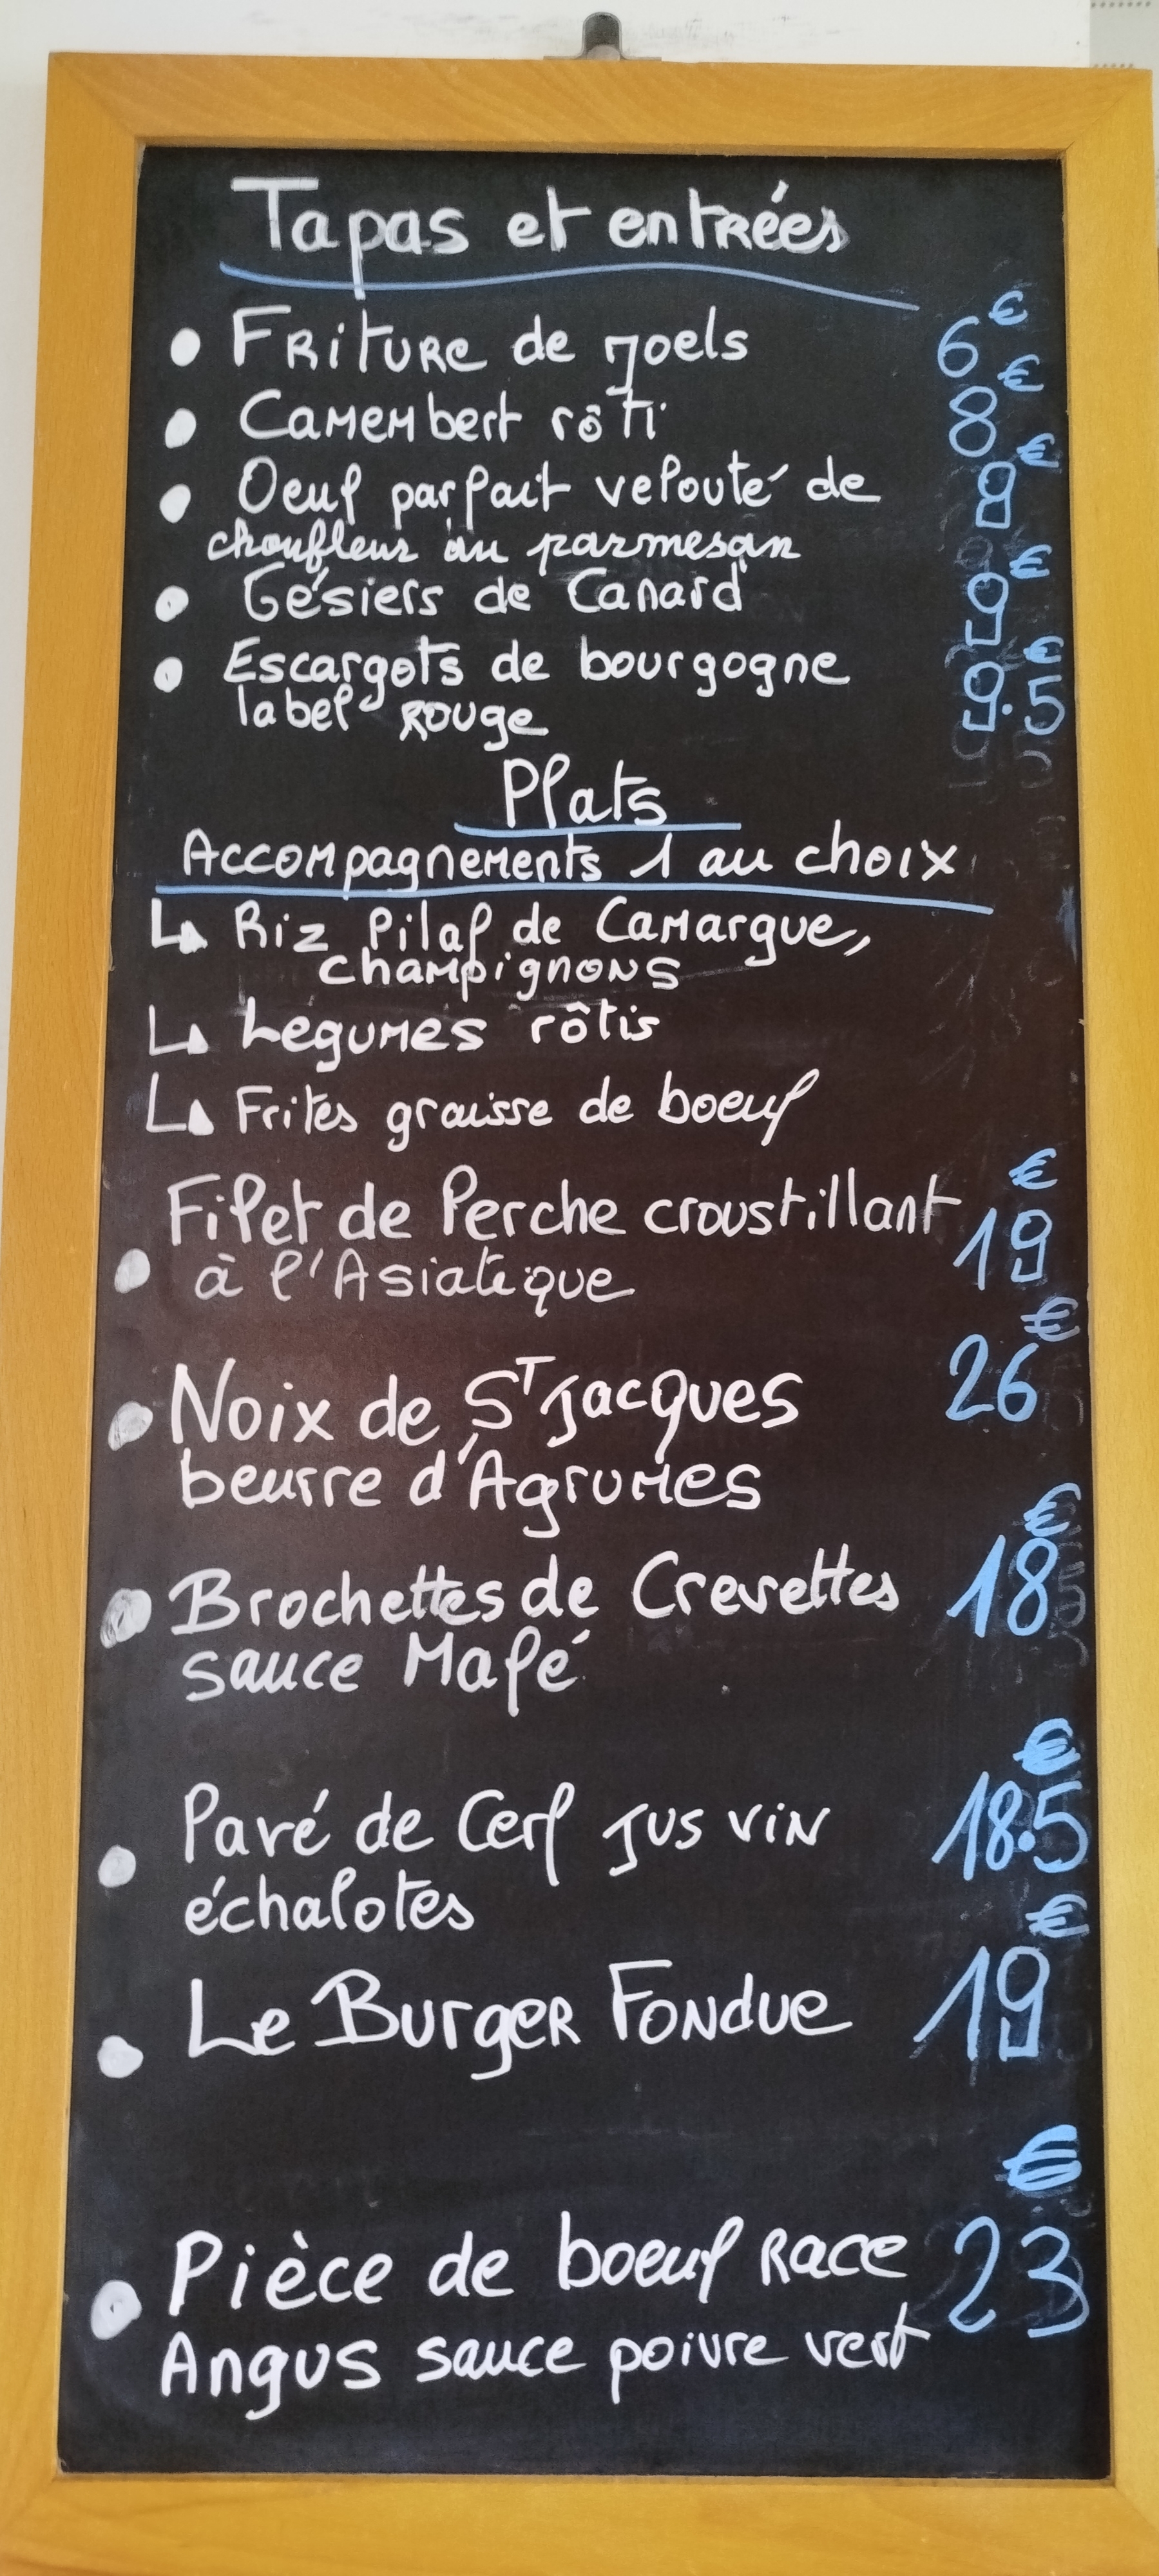 Tapas et entrées
• Friture de joels 6€
• Camembert rôti 8€
• Oeuf parfait velouté de 9€
choufleur au parmesan
• Gésiers de Canard 9€
• Escargots de bourgogne 9.5€
label rouge
Plats
Accompagnements 1 au choix
↳ Riz Pilaf de Camargue,
champignons
↳ Legumes rôtis
↳ Frites graisse de boeuf
• Filet de Perche croustillant 19€
à l'Asiatique
• Noix de St Jacques 26€
beurre d'Agrumes
• Brochettes de Crevettes 18€
sauce Mafé
• Pavé de Cerf jus vin 18.5€
échalotes
• Le Burger Fondue 19€
• Pièce de boeuf Race 23€
Angus sauce poivre vert